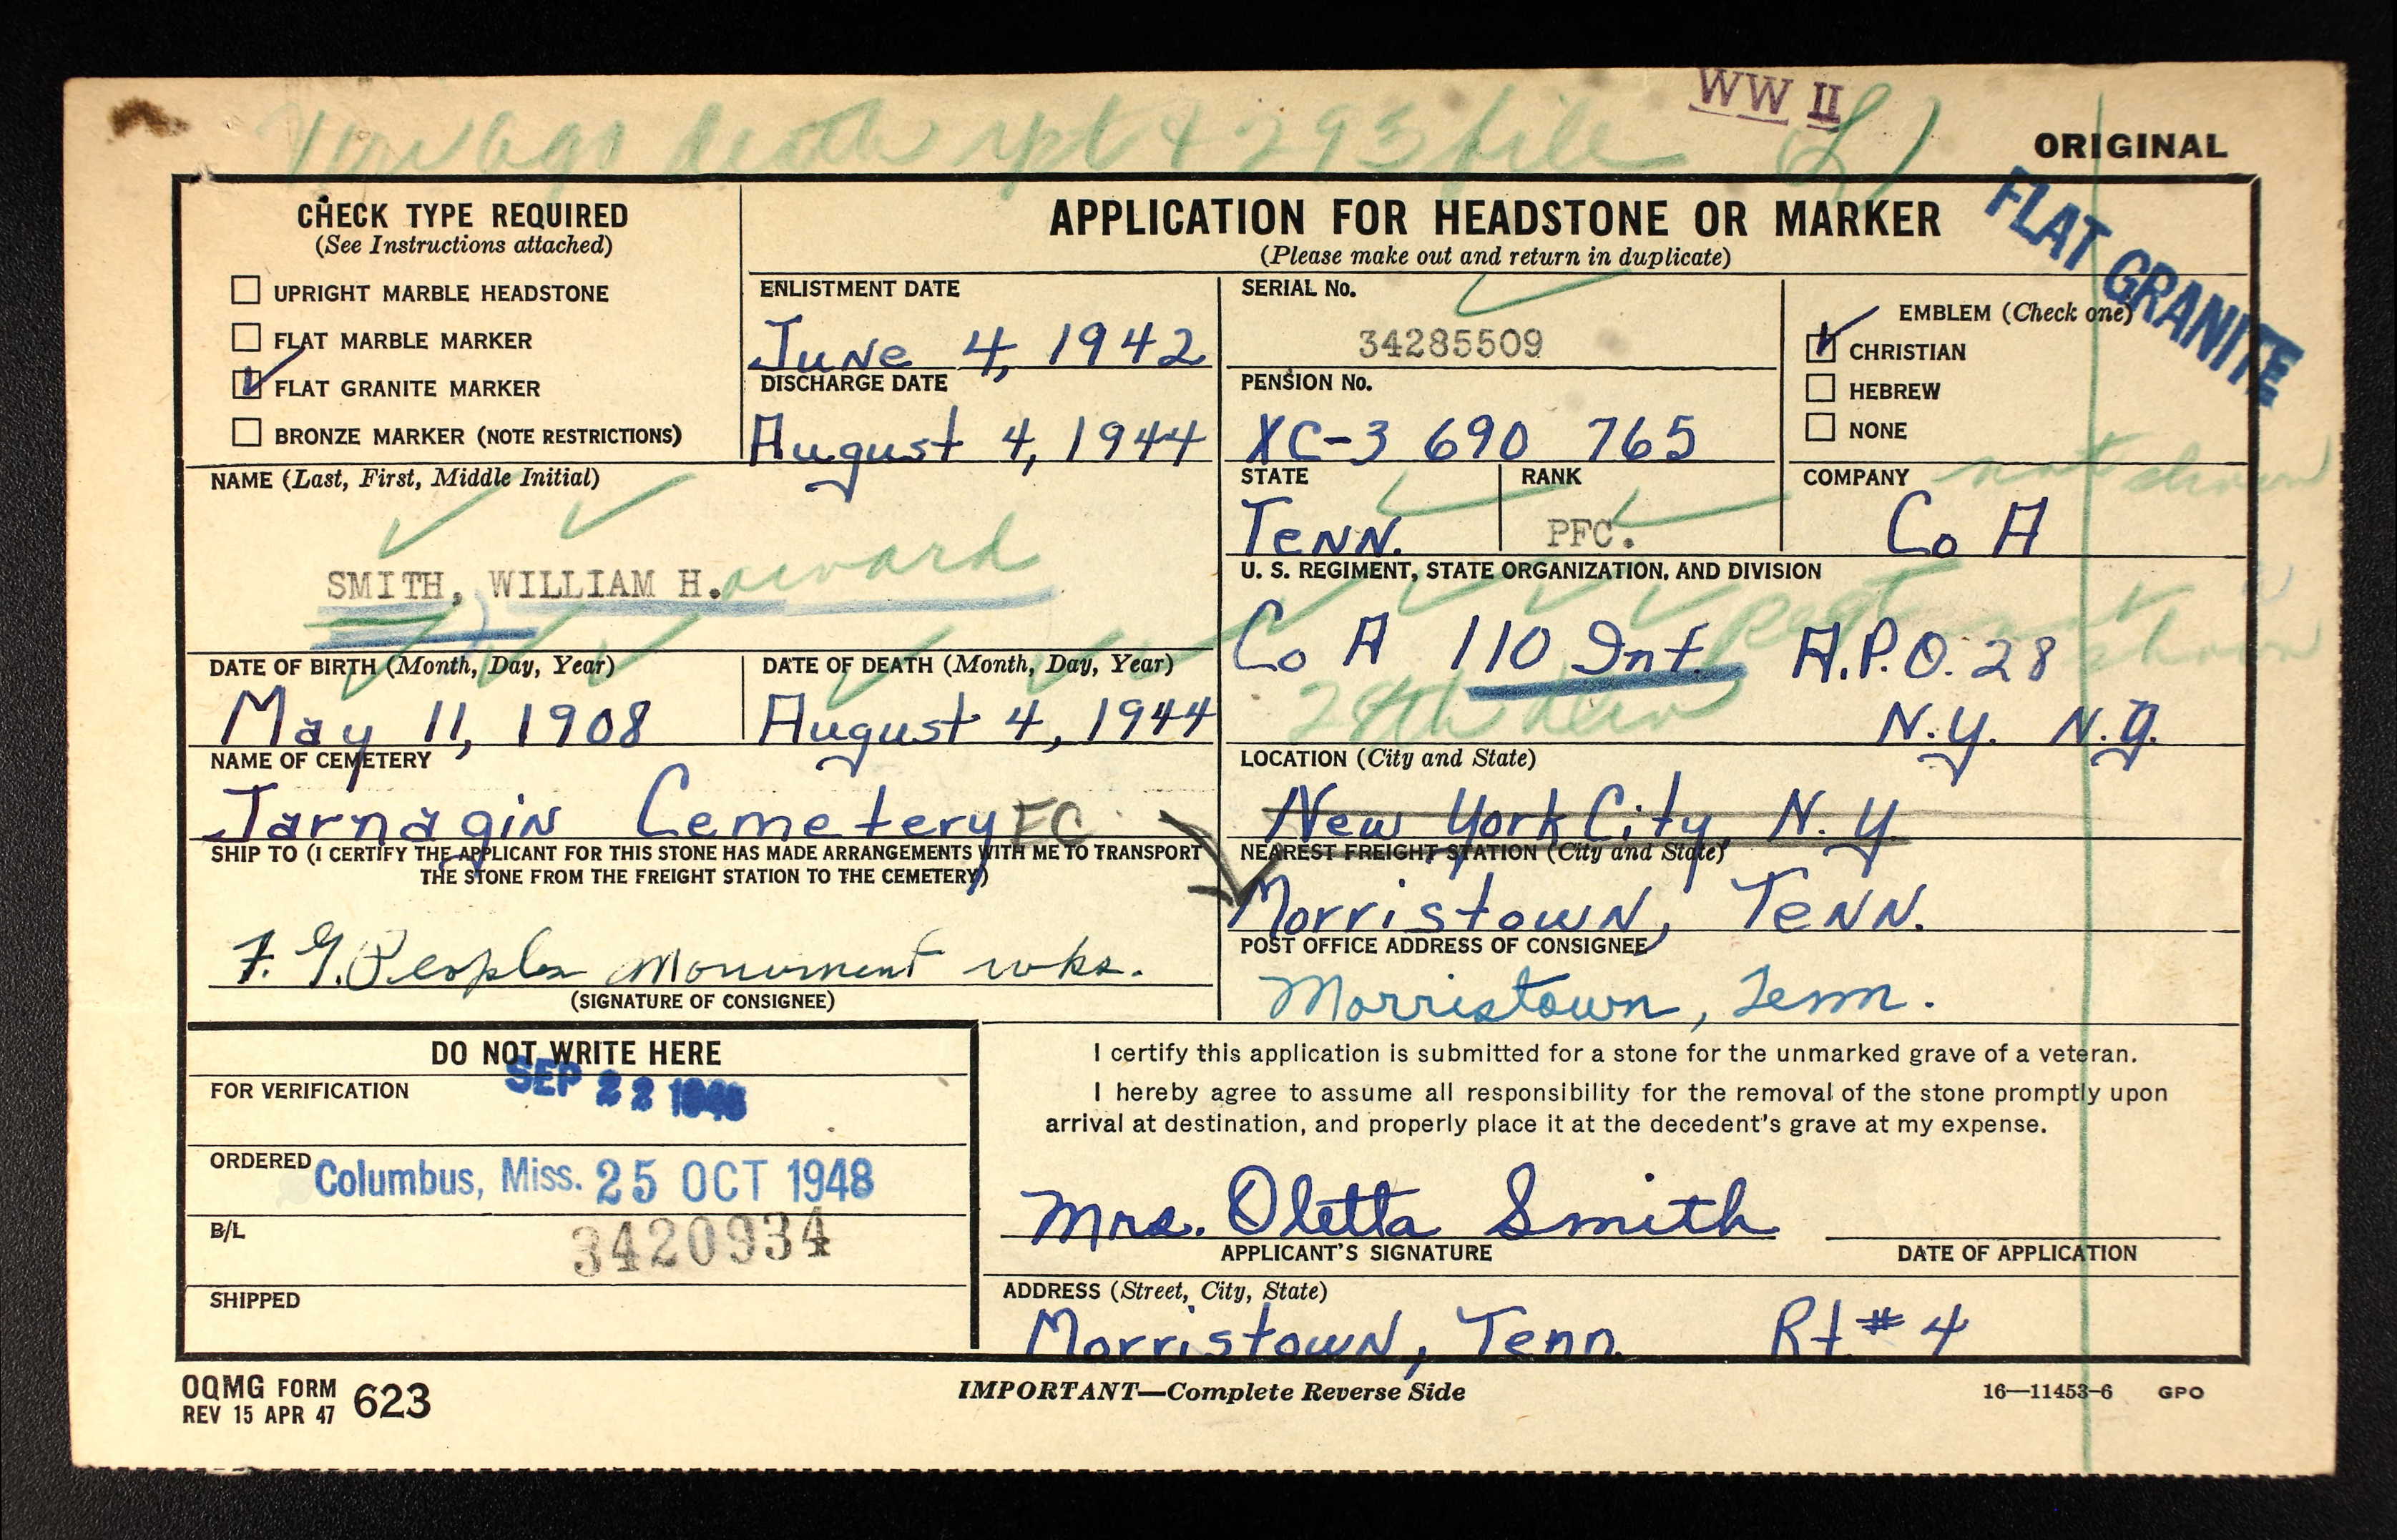 WW II
death rpt 4293 file
ORIGINAL
CHECK TYPE REQUIRED
(See Instructions attached)
UPRIGHT MARBLE HEADSTONE
FLAT MARBLE MARKER
FLAT GRANITE MARKER
BRONZE MARKER (NOTE RESTRICTIONS)
APPLICATION FOR HEADSTONE OR MARKER
(Please make out and return in duplicate)
FLAT GRANITE
ENLISTMENT DATE
June 4, 1942
DISCHARGE DATE
August 4, 1944
SERIAL No.
34285509
PENSION No.
XC-3 690 765
EMBLEM (Check one)
CHRISTIAN
HEBREW
NONE
NAME (Last, First, Middle Initial)
SMITH, WILLIAM H.oward
STATE
Tenn.
RANK
PFC.
COMPANY not shown
Co A
U. S. REGIMENT, STATE ORGANIZATION, AND DIVISION
Co A 110 Inf. A.P.O. 28
Regt not shown
28th Div
N.Y. N.Y.
DATE OF BIRTH (Month, Day, Year)
May 11, 1908
DATE OF DEATH (Month, Day, Year)
August 4, 1944
NAME OF CEMETERY
Jarnagin Cemetery EC
LOCATION (City and State)
New York City, N.Y.
SHIP TO (I CERTIFY THE APPLICANT FOR THIS STONE HAS MADE ARRANGEMENTS WITH ME TO TRANSPORT
THE STONE FROM THE FREIGHT STATION TO THE CEMETERY)
F. G. Peoples Monument wks.
(SIGNATURE OF CONSIGNEE)
NEAREST FREIGHT STATION (City and State)
Morristown, Tenn.
POST OFFICE ADDRESS OF CONSIGNEE
Morristown, Tenn.
DO NOT WRITE HERE
FOR VERIFICATION
SEP 22 1948
ORDERED
Columbus, Miss. 25 OCT 1948
B/L
3420934
SHIPPED
I certify this application is submitted for a stone for the unmarked grave of a veteran.
I hereby agree to assume all responsibility for the removal of the stone promptly upon
arrival at destination, and properly place it at the decedent's grave at my expense.
Mrs. Oletta Smith
APPLICANT'S SIGNATURE
DATE OF APPLICATION
ADDRESS (Street, City, State)
Morristown, Tenn. Rt #4
OQMG FORM 623
REV 15 APR 47
IMPORTANT—Complete Reverse Side
16—11453-6 GPO